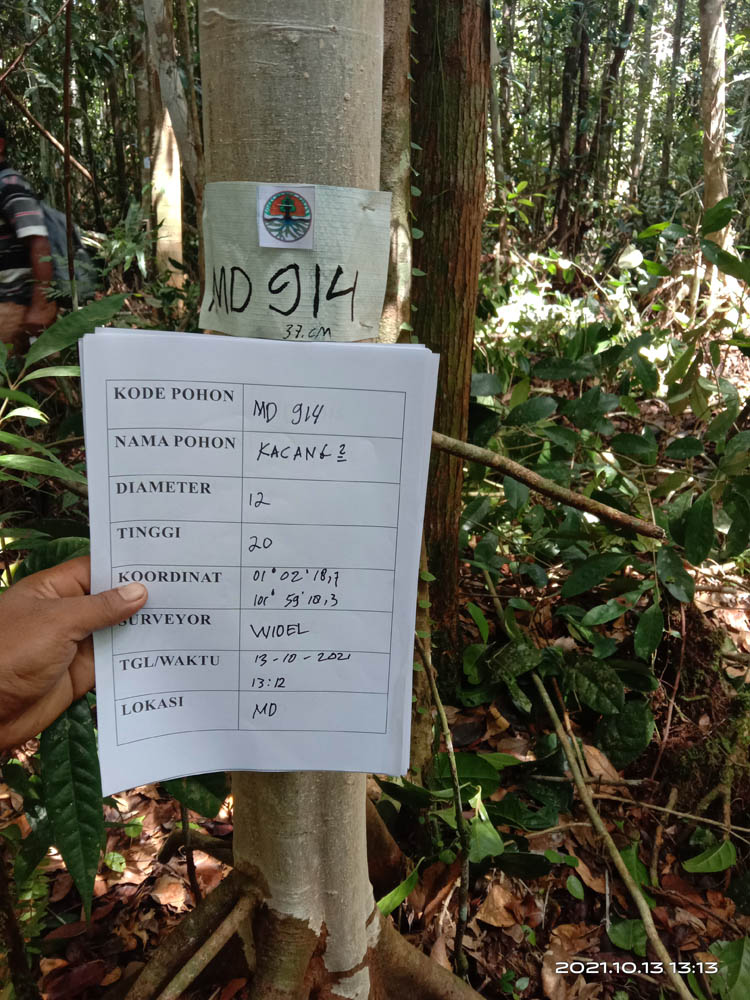 MD 914
37.CM
KODE POHON MD 914
NAMA POHON KACANG 2
DIAMETER 12
TINGGI 20
KOORDINAT 01° 02' 18,7
101° 59' 18,3
SURVEYOR WIDEL
TGL/WAKTU 13-10-2021
13:12
LOKASI MD
2021.10.13 13:13